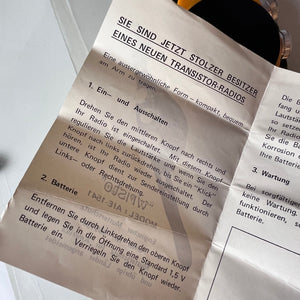 SIE SIND JETZT STOLZER BESITZER
EINES NEUEN TRANSISTOR-RADIOS
Eine aussergewöhnliche Form – kompakt, bequem
am Arm zu tragen.
1. Ein– und Ausschalten
Drehen Sie den mittleren Knopf nach rechts und
Ihr Radio ist eingeschaltet. Mit diesem Knopf
regulieren Sie die Lautstärke und wenn Sie den
Knopf zurückdrehen, bis Sie ein "Klick"
hören, ist Ihr Radio wieder ausgeschaltet. Der
untere Knopf dient zur Sendereinstellung durch
Links– oder Rechtsdrehung.
2. Batterie
Entfernen Sie durch Linksdrehen den oberen Knopf
und legen Sie in die Öffnung eine Standard 1,5 V
Batterie ein. Verriegeln Sie den Knopf wieder.
Die
fang
Laut
setze
Ihr
die
Ihr
Batterie
Korrosion
Ihr
Batterie
3. Wartung
Bei sorgfältig
keine Wartung
funktionieren,
Batterie.